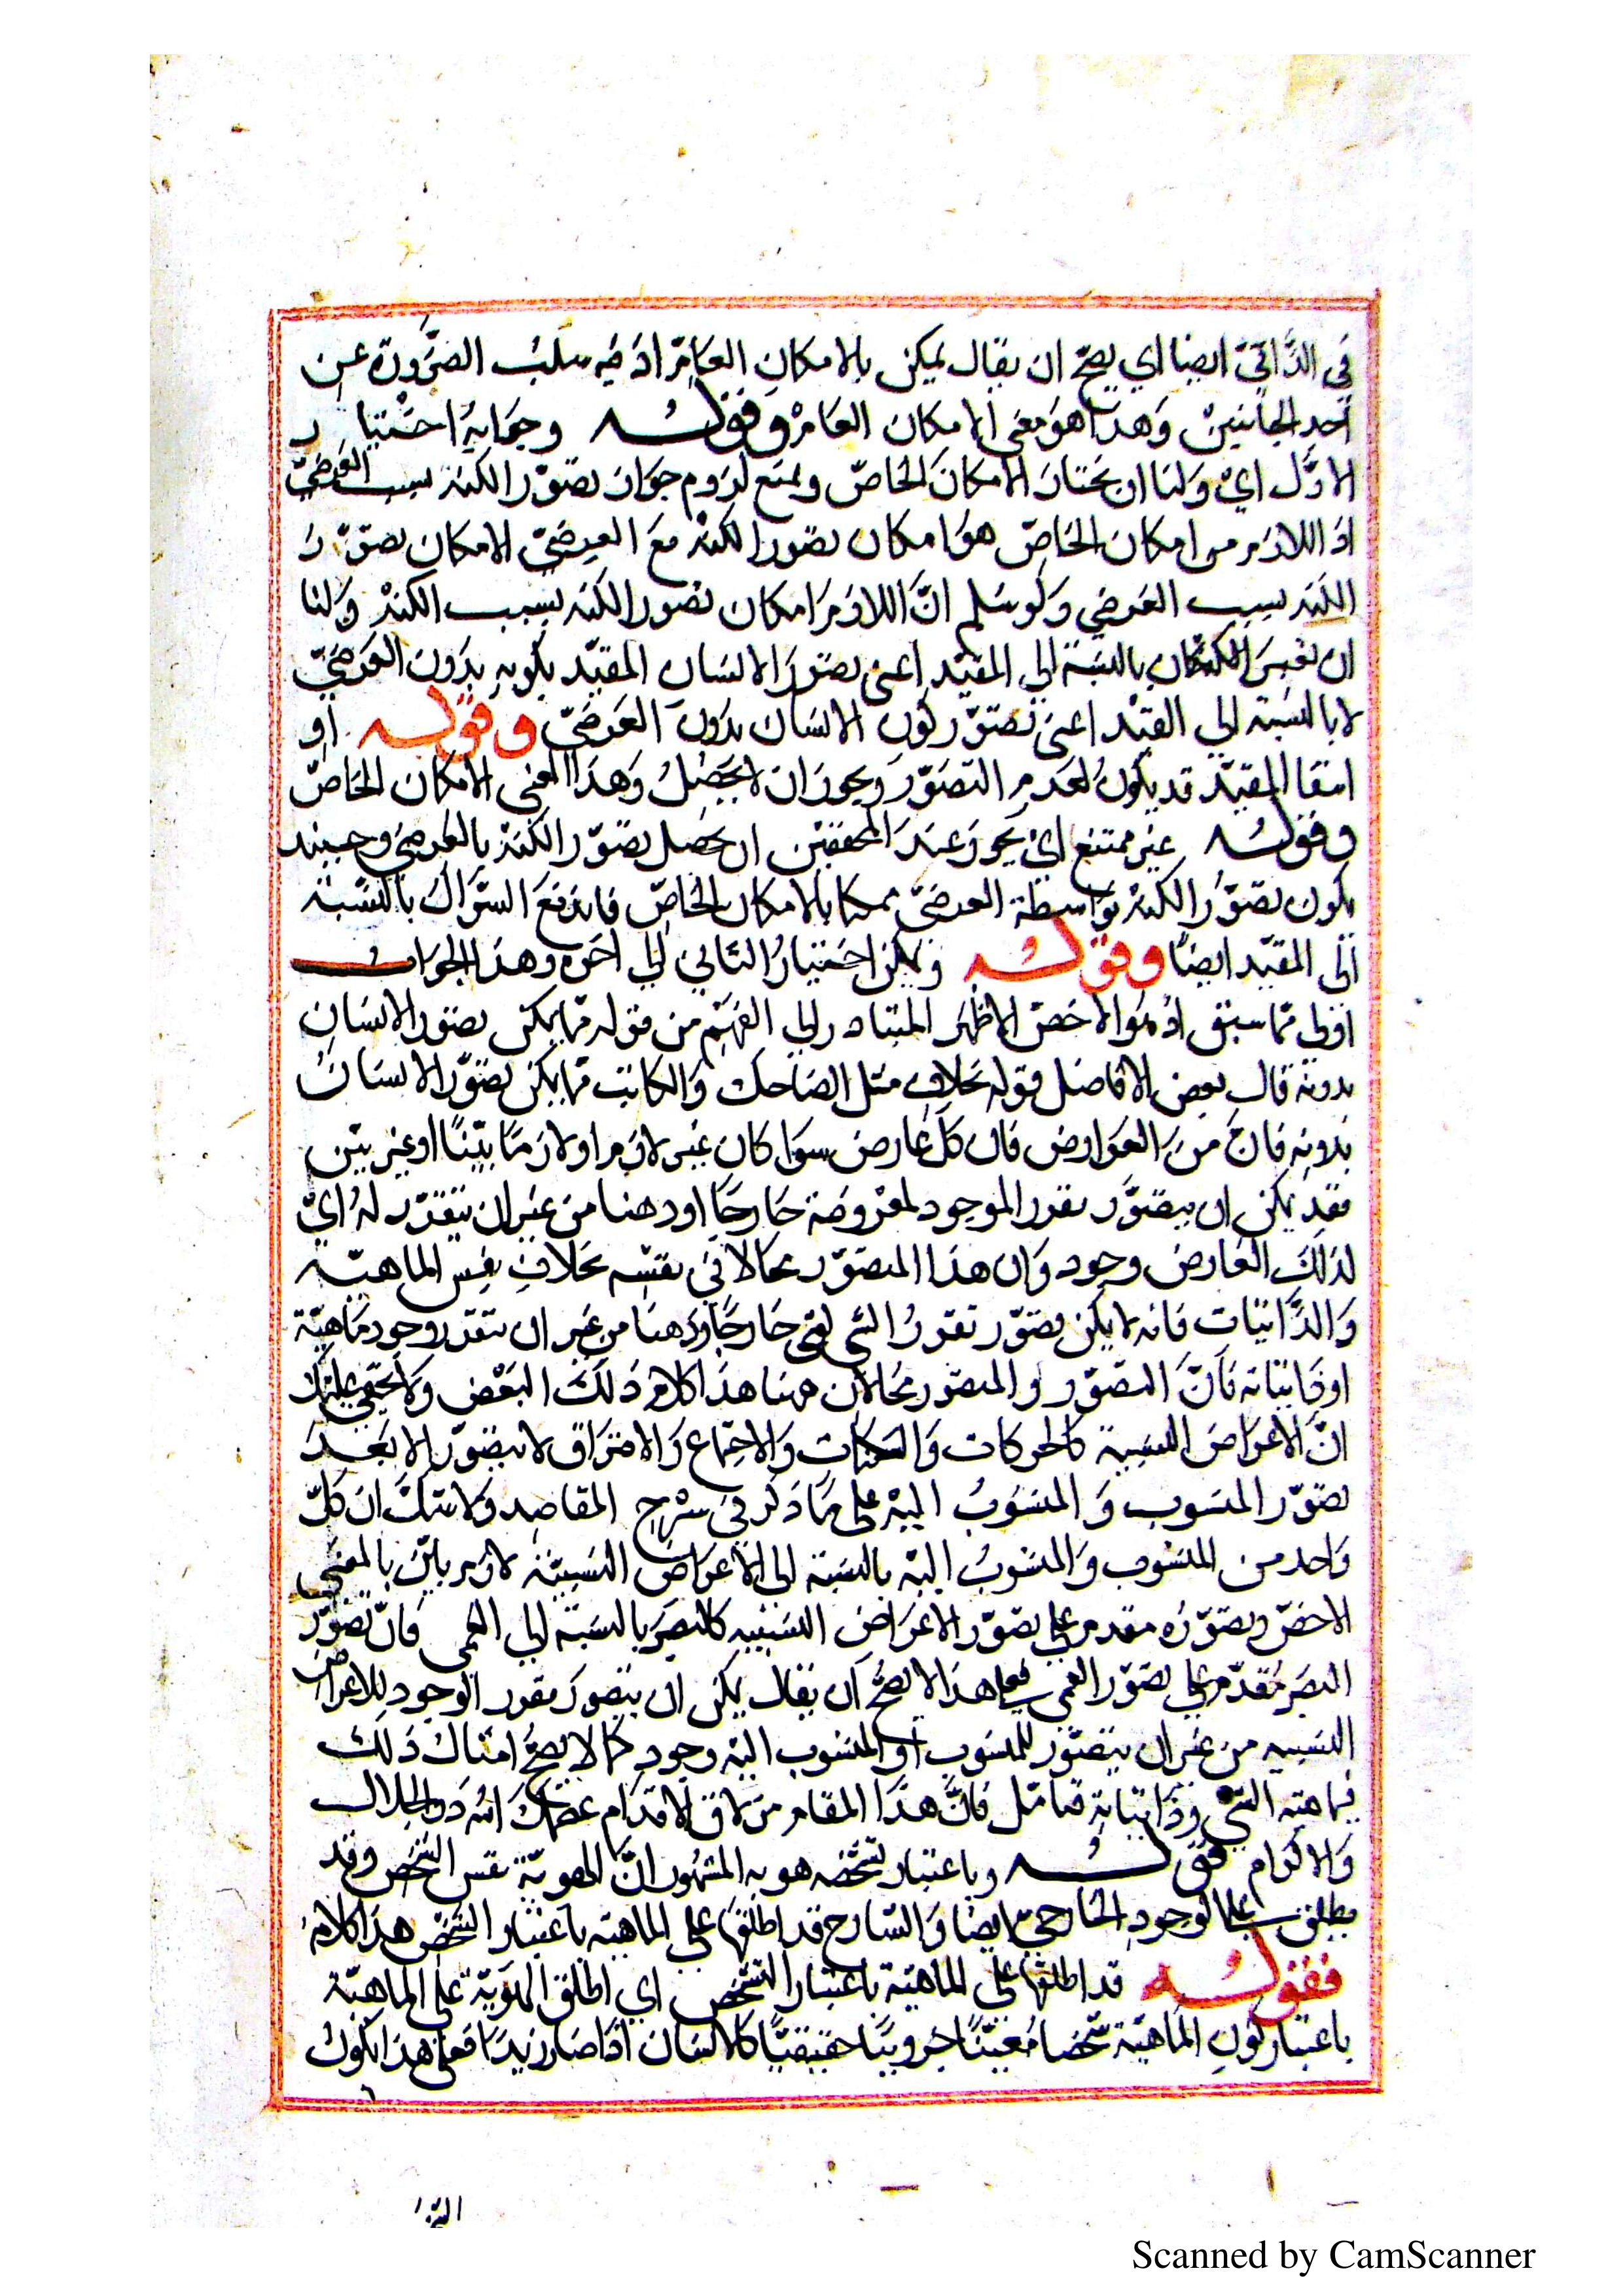 في الذاتي ايضا اي يصح ان يقال يمكن بالامكان العام اذ فيه سلب الضرورة عن
احد الجانبين وهذا هو معنى الامكان العام وقوله وجوابه اختيار
الاول اي ولنا ان نختار الامكان الخاص ونمنع لزوم جواز تصور الكنه بسبب العرضي
اذ اللازم من امكان الخاص هو امكان تصور الكنه مع العرضي لا امكان تصور
الكنه بسبب العرضي ولو سلم ان اللازم امكان تصور الكنه بسبب الكنه ولنا
ان بالنسبة الى المقيد اعني تصور الانسان المقيد بكونه بدون العرضي
لا بالنسبة الى القيد اعني تصور كون الانسان بدون العرضي وقوله او
انتفا المقيد قد يكون لعدم التصور ويجوز ان لا يحصل وهذا المعنى الامكان الخاص
وقوله غير ممتنع اي يجوز عند المحققين ان يحصل تصور الكنه بالعرضي وحينئذ
يكون تصور الكنه بواسطة العرضي ممكنا بالامكان الخاص فاندفع السؤال بالنسبة
الى المقيد ايضا وقوله ويمكن اختيار الثاني الى اخره وهذا الجواب
اولى مما سبق اذ هو الاخص الاظهر المتبادر الى الفهم من قوله مما يمكن تصور الانسان
بدونه قال بعض الافاضل قوله بخلاف مثل الضاحك والكاتب مما يمكن تصور الانسان
بدونه فانه من العوارض فان كل عارض سوا كان غير لازم او لازما بينا او غير بين
فقد يمكن ان يتصور تقرر الموجود لمعروضه خارجا او ذهنا من غير ان يتقرر له اي
لذلك العارض وجود وان هذا المتصور محالا في نفسه بخلاف نفس الماهية
والذاتيات فانه لا يمكن تصور تقرر الشي خارجا او ذهنا من غير ان يتقرر وجود ماهية
او ذاتياته فان التصور والمتصور محالان ههنا هذا كلام ذلك البعض ولا يخفى عليك
ان الاعراض النسبية كالحركات والسكنات والاجتماع والافتراق لا يتصور الا بعد
تصور المنسوب والمنسوب اليه على ما ذكر في شرح المقاصد ولا شك ان كل
واحد من المنسوب والمنسوب اليه بالنسبة الى الاعراض النسبية لازم بين بالمعنى
الاخص وتصوره مقدم على تصور الاعراض النسبيه كالبصر بالنسبة الى العمى فان تصور
البصر مقدم على تصور العمى فعلى هذا لا يصح ان يقال يمكن ان يتصور تقرر الوجود للاعراض
النسبيه من غير ان يتصور للمنسوب او المنسوب اليه وجود كما لا يصح امثال ذلك
في ماهيته الشي وذاتياته فتامل فان هذا المقام مزلاق الاقدام عصمك الله ذو الجلال
والاكرام قوله وباعتبار تشخصه هو به المشهور ان الهوية نفس الشخص وقد
يطلق على الوجود الخارجي ايضا والشارح قد اطلقها على الماهيه باعتبار التشخص هذا كلامه
فقوله قد اطلقها على الماهية باعتبار التشخص اي اطلق الهوية على الماهية
باعتبار كون الماهية شخصا معينا جزويا حقيقيا كالانسان اذا صار زيدا فعلى هذا يكون
Scanned by CamScanner